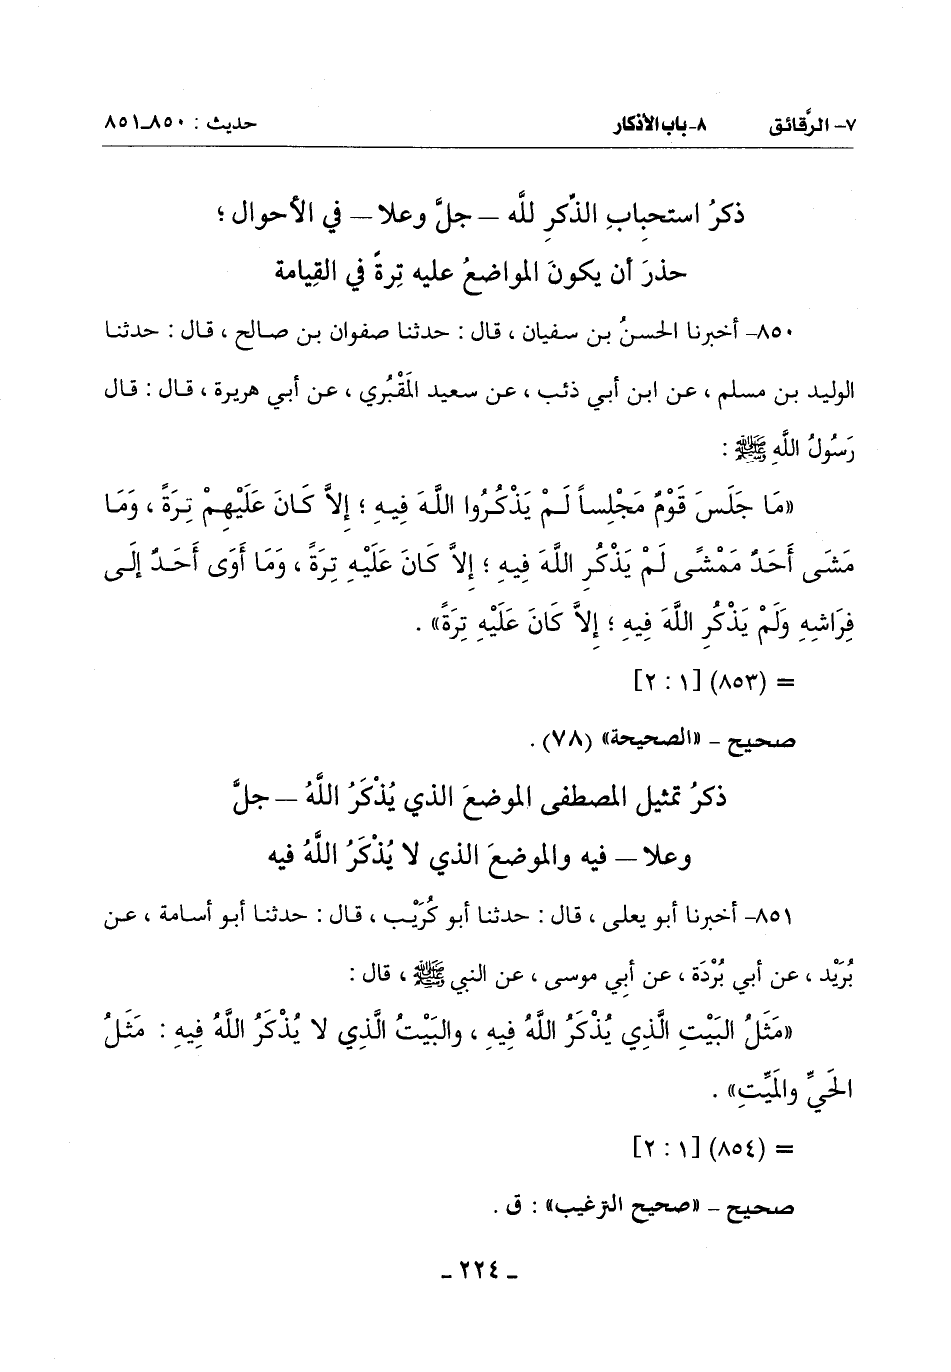 ٧- الرَّقائق ٨- باب الأذكار حديث : ٨٥٠ـ٨٥١
ذكرُ استحبابِ الذِّكرِ للَّه – جلَّ وعلا – في الأحوال ؛
حذرَ أن يكونَ المواضعُ عليه تِرةً في القِيامة
٨٥٠- أخبرنا الحسنُ بن سفيان ، قال : حدثنا صفوان بن صالح ، قال : حدثنا
الوليد بن مسلم ، عن ابن أبي ذئب ، عن سعيد المَقْبُري ، عن أبي هريرة ، قال : قال
رَسُولُ اللَّهِ ﷺ :
«مَا جَلَسَ قَوْمٌ مَجْلِساً لَمْ يَذْكُرُوا اللَّهَ فِيهِ ؛ إِلاَّ كَانَ عَلَيْهِمْ تِرَةً ، وَمَا
مَشَى أَحَدٌ مَمْشًى لَمْ يَذْكُرِ اللَّهَ فِيهِ ؛ إِلاَّ كَانَ عَلَيْهِ تِرَةً ، وَمَا أَوَى أَحَدٌ إِلَى
فِرَاشِهِ وَلَمْ يَذْكُرِ اللَّهَ فِيهِ ؛ إِلاَّ كَانَ عَلَيْهِ تِرَةً» .
= (٨٥٣) [١ : ٢]
صحيح - «الصحيحة» (٧٨) .
ذكرُ تمثيل المصطفى الموضعَ الذي يُذْكَرُ اللَّهُ – جلَّ
وعلا – فيه والموضعَ الذي لا يُذْكَرُ اللَّهُ فيه
٨٥١- أخبرنا أبو يعلى ، قال : حدثنا أبو كُرَيْب ، قال : حدثنا أبو أسامة ، عن
بُرَيْد ، عن أبي بُرْدَة ، عن أبي موسى ، عن النبي ﷺ ، قال :
«مَثَلُ البَيْتِ الَّذِي يُذْكَرُ اللَّهُ فِيهِ ، والبَيْتُ الَّذِي لا يُذْكَرُ اللَّهُ فِيهِ : مَثَلُ
الحَيِّ والمَيِّتِ» .
= (٨٥٤) [١ : ٢]
صحيح - «صحيح الترغيب» : ق .
- ٢٢٤ -